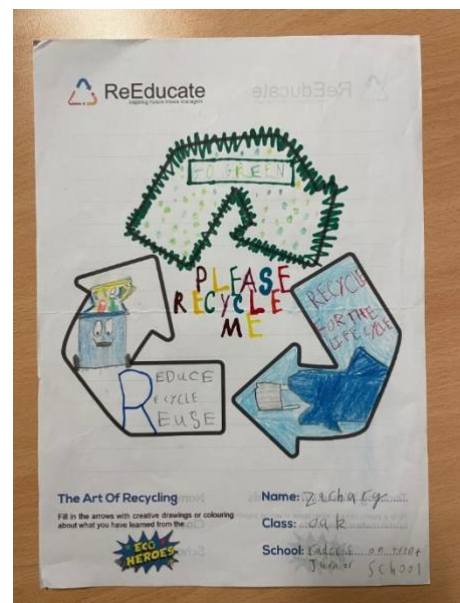 ReEducate
GO GREEN
PLEASE
RECYCLE
ME
RECYCLE
FOR THE
LIFE CYCLE
REDUCE
RECYCLE
REUSE
The Art Of Recycling
Fill in the arrows with creative drawings or colouring
about what you have learned from the
ECO
HEROES
Name: Zachary
Class: oak
School: on
Junior School